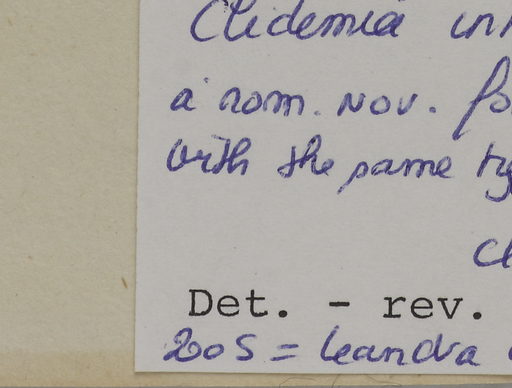 Clidemia
a nom. nov.
with the same
Det. - rev.
2005 = leandra